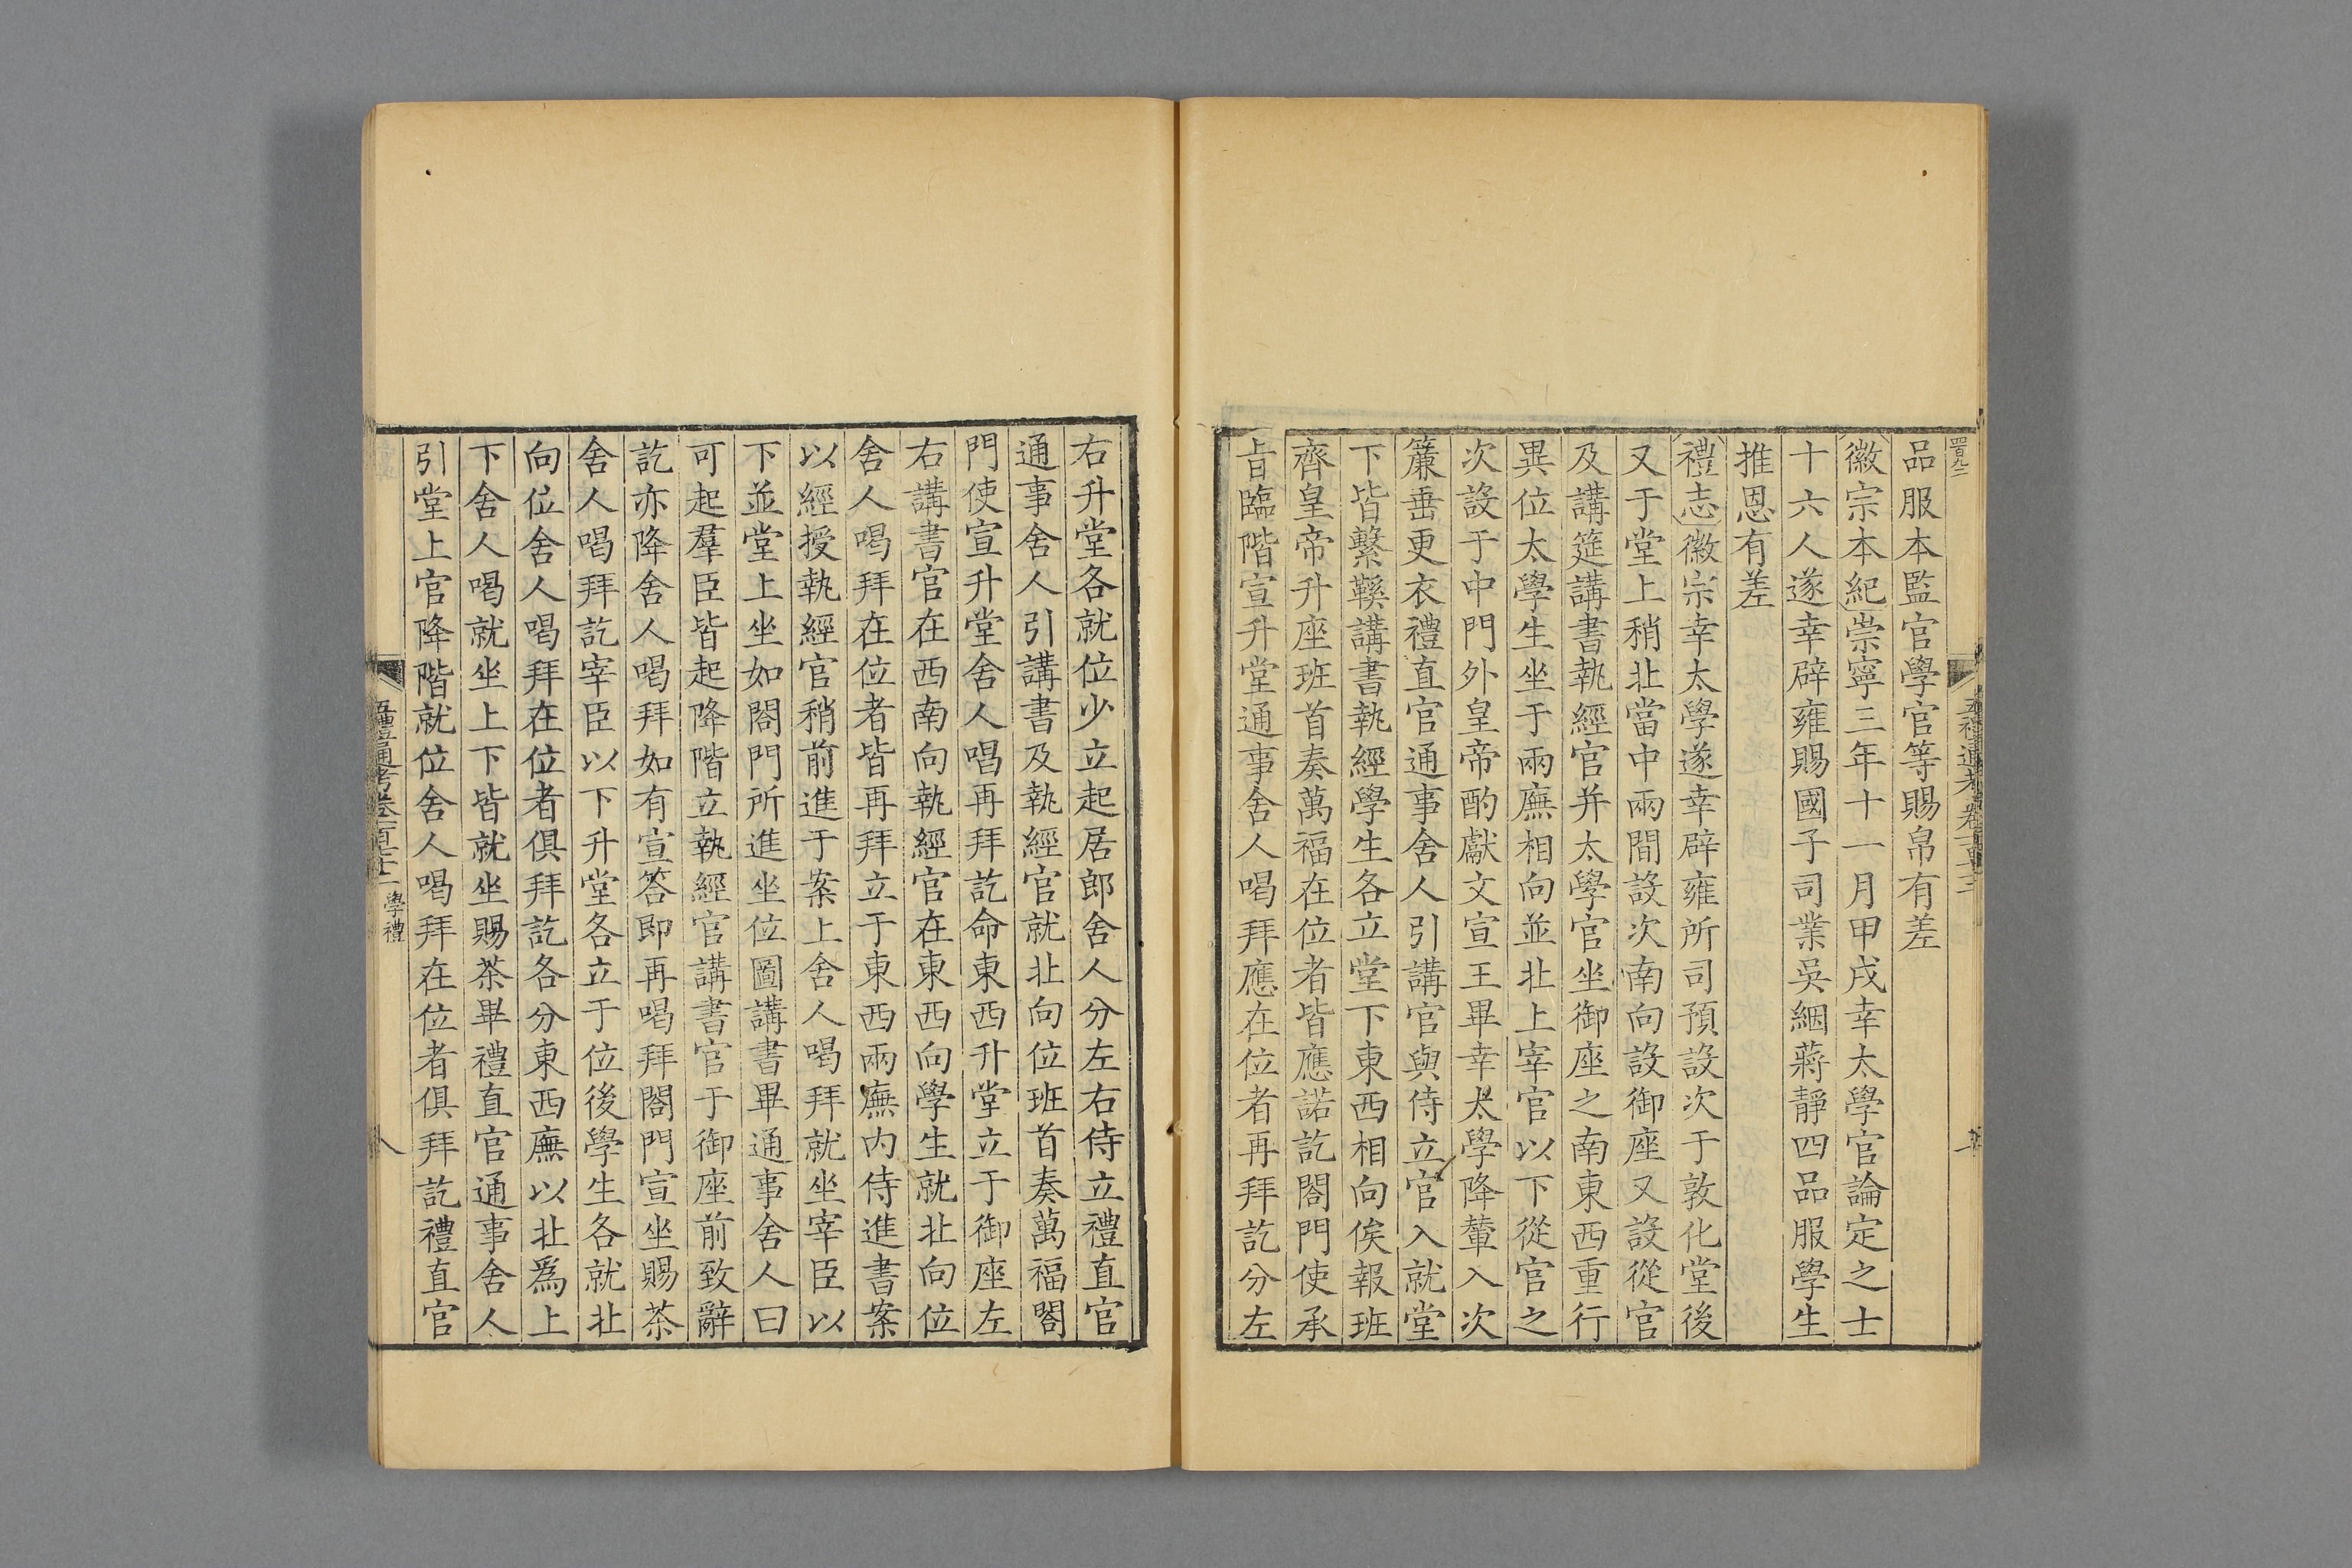 品服本監官學官等賜帛有差
徽宗本紀崇寧三年十一月甲戌幸太學官論定之士
十六人遂幸辟雍賜國子司業吳絪蔣靜四品服學生
推恩有差
禮志徽宗幸太學遂幸辟雍所司預設次于敦化堂後
又于堂上稍北當中兩間設次南向設御座又設從官
及講筵講書執經官并太學官坐御座之南東西重行
異位太學生坐于兩廡相向並北上宰官以下從官之
次設于中門外皇帝酌獻文宣王畢幸太學降輦入次
簾垂更衣禮直官通事舍人引講官與侍立官入就堂
下皆繫鞵講書執經學生各立堂下東西相向俟報班
齊皇帝升座班首奏萬福在位者皆應諾訖閤門使承
旨臨階宣升堂通事舍人喝拜應在位者再拜訖分左
右升堂各就位少立起居郎舍人分左右侍立禮直官
通事舍人引講書及執經官就北向位班首奏萬福閤
門使宣升堂舍人唱再拜訖命東西升堂立于御座左
右講書官在西南向執經官在東西向學生就北向位
舍人喝拜在位者皆再拜立于東西兩廡內侍進書案
以經授執經官稍前進于案上舍人喝拜就坐宰臣以
下並堂上坐如閤門所進坐位圖講書畢通事舍人曰
可起羣臣皆起降階立執經官講書官于御座前致辭
訖亦降舍人喝拜如有宣答即再喝拜閤門宣坐賜茶
舍人喝拜訖宰臣以下升堂各立于位後學生各就北
向位舍人喝拜在位者俱拜訖各分東西廡以北爲上
下舍人喝就坐上下皆就坐賜茶畢禮直官通事舍人
引堂上官降階就位舍人喝拜在位者俱拜訖禮直官
學禮
八